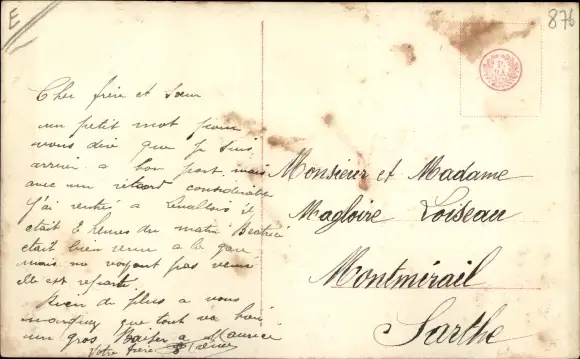 E
876
Cher frère et Sœur
un petit mot pour
vous dire que je suis
arriver a bon port mais
avec un retard considérable
J'ai rentré a Levallois il
était 2 heures du matin Beatrice
était bien venue a la gare
mais ne voyant pas venir
elle est repartie
Rien de plus a vous
marquer que tout va bien
un gros Baiser a Maurice
Votre frère
Monsieur et Madame
Magloire Loiseau
Montmirail
Sarthe